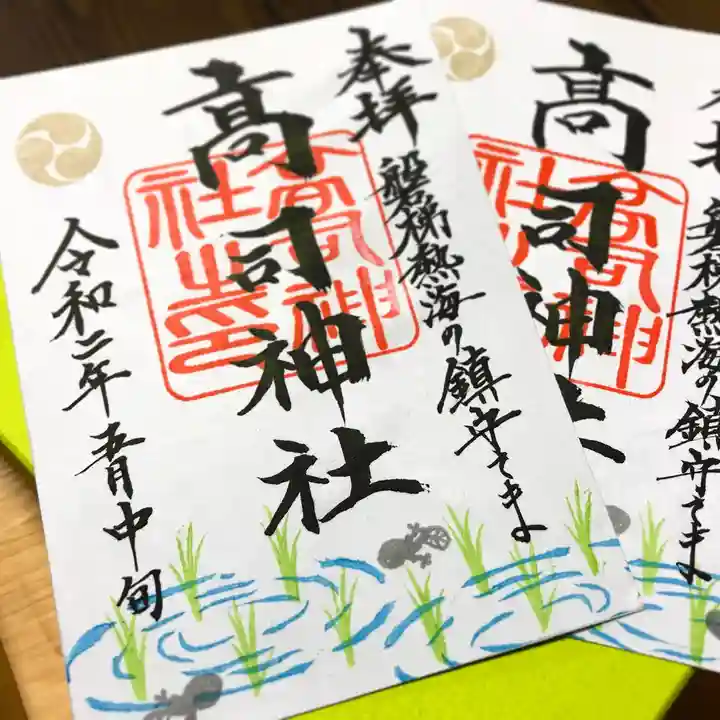 奉拝
磐梯熱海の鎮守さま
高司神社
高司神社之印
令和二年五月中旬
磐梯熱海の鎮守さま
高司神社